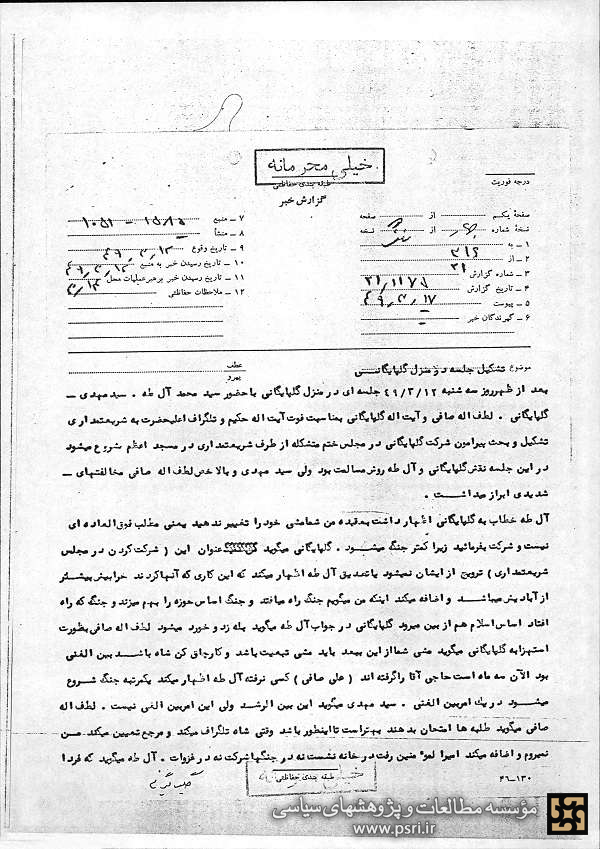 خیلی محرمانه
طبقه بندی حفاظتی
گزارش خبر
درجه فوریت
صفحه یکم از صفحه
نسخه شماره از نسخه
۱ ـ به
۲ ـ از ۳۱۶
۳ ـ شماره گزارش ۲۱
۴ ـ تاریخ گزارش
۵ ـ پیوست
۶ ـ گیرندگان خبر
۷ ـ منبع
۸ ـ منشأ
۹ ـ تاریخ وقوع
۱۰ ـ تاریخ رسیدن خبر به منبع
۱۱ ـ تاریخ رسیدن خبر برهبر عملیات محل
۱۲ ـ ملاحظات حفاظتی
عطف
پیرو
موضوع تشکیل جلسه در منزل گلپایگانی
بعد از ظهر روز سه شنبه ۴۹/۳/۱۲ جلسه ای در منزل گلپایگانی با حضور سید محمد آل طه ـ سید مهدی ـ
گلپایگانی ـ لطف اله صافی و آیت اله گلپایگانی بمناسبت فوت آیت اله حکیم و تلگراف اعلیحضرت به شریعتمداری
تشکیل و بحث پیرامون شرکت گلپایگانی در مجلس ختم متشکله از طرف شریعتمداری در مسجد اعظم شروع میشود
در این جلسه نقش گلپایگانی و آل طه روش مسالمت بود ولی سید مهدی و بالاخص لطف اله صافی مخالفتهای ـ
شدیدی ابراز میداشت .
آل طه خطاب به گلپایگانی اظهار داشت بعقیده من شما مشی خود را تغییر ندهید یعنی مطلب فوق العاده ای
نیست و شرکت بفرمائید زیرا کمتر جنگ میشود . گلپایگانی میگوید عنوان این ( شرکت کردن در مجلس
شریعتمداری ) ترویج از ایشان نمیشود با تصدیق آل طه اظهار میکند که این کاری که آنها کردند خرابیش بیشتر
از آبادیش میباشد و اضافه میکند اینکه من میگویم جنگ راه میافتد و جنگ اساس حوزه را بهم میزند و جنگ که راه
افتاد اساس اسلام هم از بین میرود گلپایگانی در جواب آل طه میگوید بله زد و خورد میشود لطف اله صافی بطورت
استهزا به گلپایگانی میگوید مشی شما از این ببعد باید مشی تبعیت باشد و کارچاق کن شاه باشد بین الغنی
بود الآن سه ماه است حاجی آقا را گرفته اند ( علی صافی ) کسی نرفته آل طه اظهار میکند یکمرتبه جنگ شروع
میشود در یک امر بین الغنی . سید مهدی میگوید این بین الرشد ولی این امر بین الغی نیست . لطف اله
صافی میگوید طلبه ها امتحان بدهند بهتر است تا اینطور باشد وقتی شاه تلگراف میکند و مرجع تعیین میکند من
نمیروم و اضافه میکند امیرالمؤمنین رفت در خانه نشست نه در جنگها شرکت نه در غزوات . آل طه میگوید که فردا
طبقه بندی حفاظتی
خیلی محرمانه
۴۶-۱۳۰
مؤسسه مطالعات و پژوهشهای سیاسی
www.psri.ir